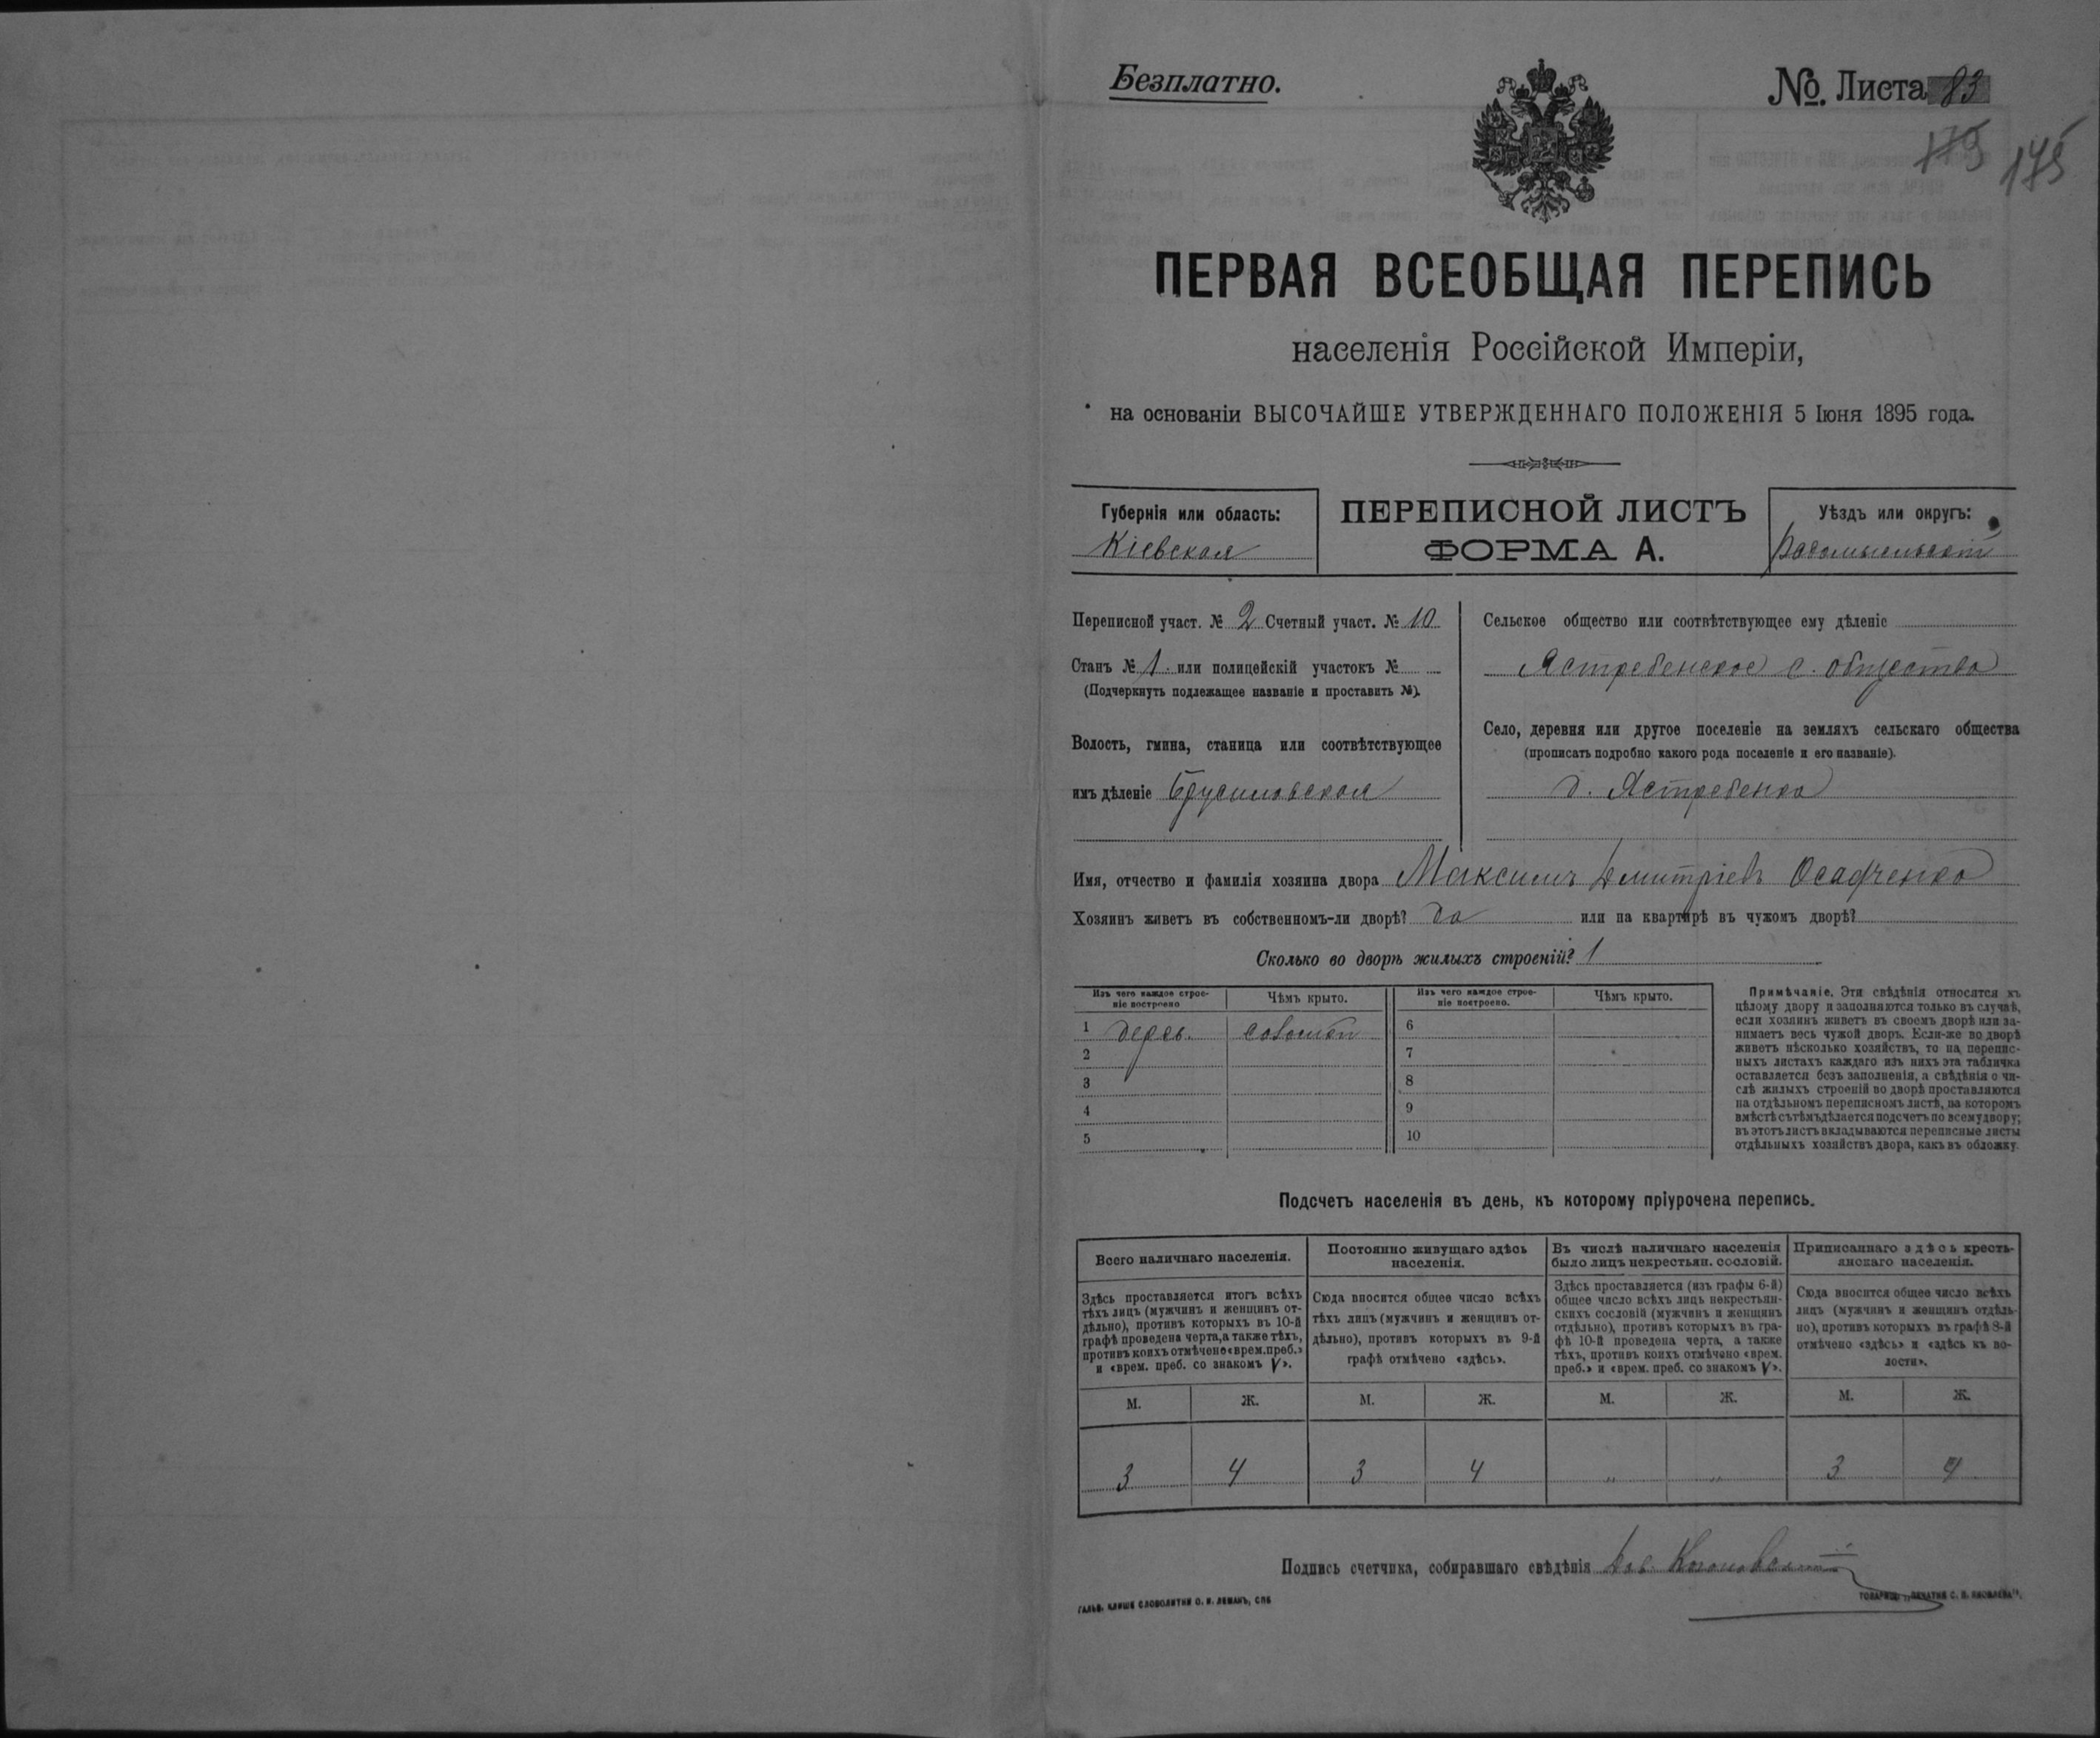 Безплатно.
№ Листа 83
175
ПЕРВАЯ ВСЕОБЩАЯ ПЕРЕПИСЬ
населенія Россійской Имперіи,
на основаніи ВЫСОЧАЙШЕ УТВЕРЖДЕННАГО ПОЛОЖЕНІЯ 5 Іюня 1895 года.
Губернія или область:
Кіевская
ПЕРЕПИСНОЙ ЛИСТЪ
ФОРМА А.
Уѣздъ или округъ:
Радомысльскій
Переписной участ. № 2 Счетный участ. № 10
Станъ № 1 или полицейскій участокъ №
(Подчеркнуть подлежащее названіе и проставить №).
Волость, гмина, станица или соотвѣтствующее
имъ дѣленіе Брусиловская
Сельское общество или соотвѣтствующее ему дѣленіе
Ястребенское с. общество
Село, деревня или другое поселеніе на земляхъ сельскаго общества
(прописать подробно какого рода поселеніе и его названіе).
д. Ястребенка
Имя, отчество и фамилія хозяина двора Максимъ Дмитріевъ Осадченко
Хозяинъ живетъ въ собственномъ-ли дворѣ? да или на квартирѣ въ чужомъ дворѣ?
Сколько во дворѣ жилыхъ строеній? 1
Изъ чего каждое строе-
ніе построено
Чѣмъ крыто.
Изъ чего каждое строе-
ніе построено.
Чѣмъ крыто.
1 дерев. соломой
2
3
4
5
6
7
8
9
10
Примѣчаніе. Эти свѣдѣнія относятся къ
цѣлому двору и заполняются только въ случаѣ,
если хозяинъ живетъ въ своемъ дворѣ или за-
нимаетъ весь чужой дворъ. Если-же во дворѣ
живетъ нѣсколько хозяйствъ, то на перепис-
ныхъ листахъ каждаго изъ нихъ эта табличка
оставляется безъ заполненія, а свѣдѣнія о чи-
слѣ жилыхъ строеній во дворѣ проставляются
на отдѣльномъ переписномъ листѣ, на которомъ
вмѣстѣ съ тѣмъ дѣлается подсчетъ по всему двору;
въ этотъ листъ вкладываются переписные листы
отдѣльныхъ хозяйствъ двора, какъ въ обложку.
Подсчетъ населенія въ день, къ которому пріурочена перепись.
Всего наличнаго населенія.
Здѣсь проставляется итогъ всѣхъ
тѣхъ лицъ (мужчинъ и женщинъ от-
дѣльно), противъ которыхъ въ 10-й
графѣ проведена черта, а также тѣхъ,
противъ коихъ отмѣчено «врем. преб.»
и «врем. преб. со знакомъ V».
Постоянно живущаго здѣсь
населенія.
Сюда вносится общее число всѣхъ
тѣхъ лицъ (мужчинъ и женщинъ от-
дѣльно), противъ которыхъ въ 9-й
графѣ отмѣчено «здѣсь».
Въ числѣ наличнаго населенія
было лицъ некрестьян. сословій.
Здѣсь проставляется (изъ графы 6-й)
общее число всѣхъ лицъ некрестьян-
скихъ сословій (мужчинъ и женщинъ
отдѣльно), противъ которыхъ въ гра-
фѣ 10-й проведена черта, а также
тѣхъ, противъ коихъ отмѣчено «врем.
преб.» и «врем. преб. со знакомъ V».
Приписаннаго здѣсь кресть-
янскаго населенія.
Сюда вносится общее число всѣхъ
лицъ (мужчинъ и женщинъ отдѣль-
но), противъ которыхъ въ графѣ 8-й
отмѣчено «здѣсь» и «здѣсь къ во-
лости».
М. Ж. М. Ж. М. Ж. М. Ж.
3 4 3 4 „ „ 3 4
Подпись счетчика, собиравшаго свѣдѣнія
ГАЛЬВ. КЛИШЕ СЛОВОЛИТНИ О. И. ЛЕМАНЪ, СПБ
ТОВАРИЩ. „ПЕЧАТНЯ С. П. ЯКОВЛЕВА".